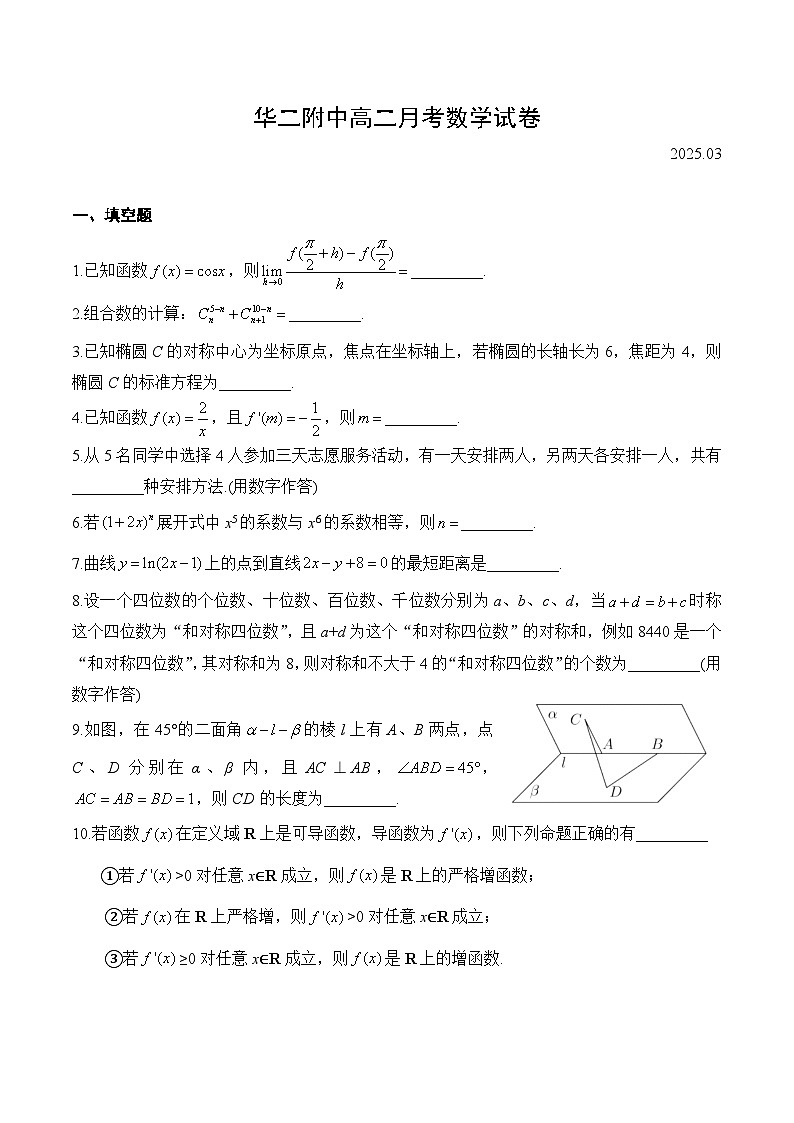 华二附中高二月考数学试卷
2025.03
一、填空题
1.已知函数 f(x) = cosx，则 lim_{h→0} \frac{f(\frac{π}{2}+h) − f(\frac{π}{2})}{h} = _________.
2.组合数的计算：C_n^{5−n} + C_{n+1}^{10−n} = _________.
3.已知椭圆 C 的对称中心为坐标原点，焦点在坐标轴上，若椭圆的长轴长为 6，焦距为 4，则
椭圆 C 的标准方程为_________.
4.已知函数 f(x) = \frac{2}{x}，且 f '(m) = −\frac{1}{2}，则 m = _________.
5.从 5 名同学中选择 4 人参加三天志愿服务活动，有一天安排两人，另两天各安排一人，共有
_________种安排方法.(用数字作答)
6.若 (1+2x)^n 展开式中 x^5 的系数与 x^6 的系数相等，则 n = _________.
7.曲线 y = ln(2x−1) 上的点到直线 2x − y + 8 = 0 的最短距离是_________.
8.设一个四位数的个位数、十位数、百位数、千位数分别为 a、b、c、d，当 a + d = b + c 时称
这个四位数为“和对称四位数”，且 a+d 为这个“和对称四位数”的对称和，例如 8440 是一个
“和对称四位数”，其对称和为 8，则对称和不大于 4 的“和对称四位数”的个数为_________(用
数字作答)
9.如图，在 45°的二面角 α−l−β 的棱 l 上有 A、B 两点，点
C、D 分别在 α、β 内，且 AC ⊥ AB，∠ABD = 45°，
AC = AB = BD = 1，则 CD 的长度为_________.
α
C
A
B
l
β
D
10.若函数 f(x) 在定义域 R 上是可导函数，导函数为 f '(x)，则下列命题正确的有_________
①若 f '(x) >0 对任意 x∈R 成立，则 f(x) 是 R 上的严格增函数；
②若 f(x) 在 R 上严格增，则 f '(x) >0 对任意 x∈R 成立；
③若 f '(x) ≥0 对任意 x∈R 成立，则 f(x) 是 R 上的增函数.